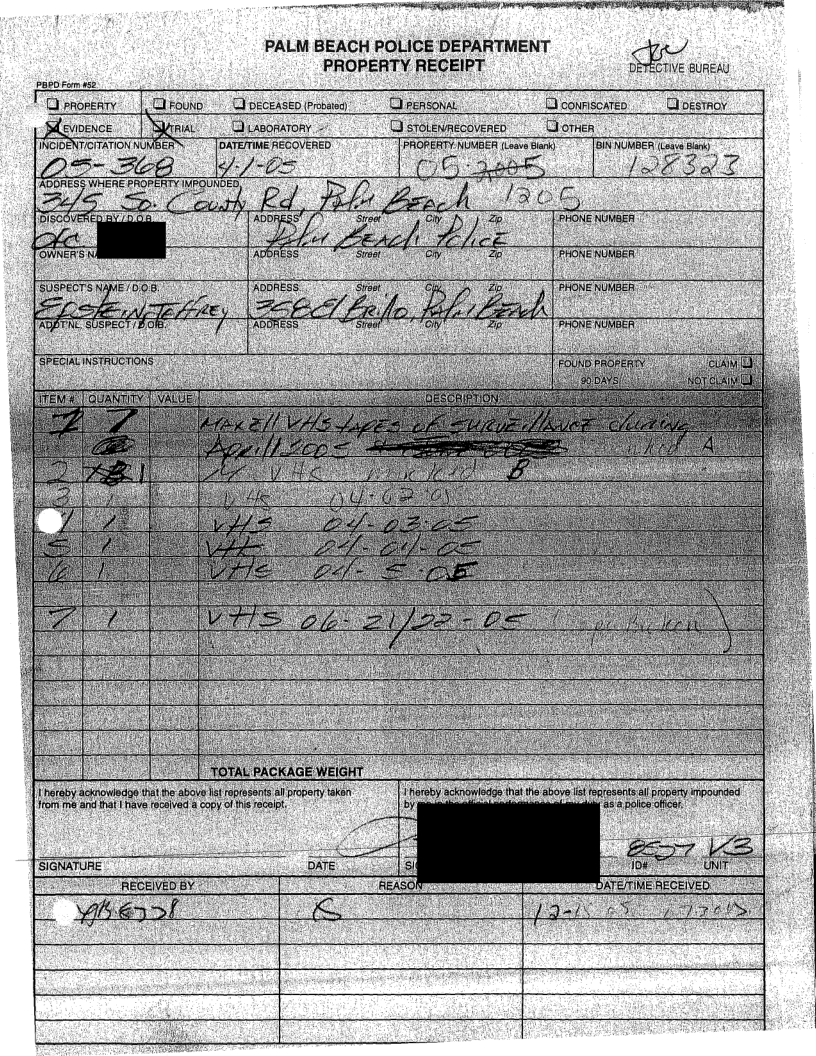 PALM BEACH POLICE DEPARTMENT
PROPERTY RECEIPT
DETECTIVE BUREAU
PBPD Form #52
PROPERTY FOUND DECEASED (Probated) PERSONAL CONFISCATED DESTROY
EVIDENCE TRIAL LABORATORY STOLEN/RECOVERED OTHER
INCIDENT/CITATION NUMBER DATE/TIME RECOVERED PROPERTY NUMBER (Leave Blank) BIN NUMBER (Leave Blank)
05-368 4-1-05 05-2005 128323
ADDRESS WHERE PROPERTY IMPOUNDED
345 So. County Rd, Palm Beach 1205
DISCOVERED BY / D.O.B. ADDRESS Street City Zip PHONE NUMBER
Palm Beach Police
OWNER'S ADDRESS Street City Zip PHONE NUMBER
SUSPECT'S NAME / D.O.B. ADDRESS Street City Zip PHONE NUMBER
Epstein, Jeffrey 358 El Brillo, Palm Beach
ADDT'NL. SUSPECT / D.O.B. ADDRESS Street City Zip PHONE NUMBER
SPECIAL INSTRUCTIONS FOUND PROPERTY CLAIM
90 DAYS NOT CLAIM
ITEM # QUANTITY VALUE DESCRIPTION
1 7 Maxell VHS tapes of surveillance during
April 2005 A
2 1 VHS B
3 1 VHS
1 VHS 04-03-05
5 1 VHS 04-04-05
6 1 VHS 04-5-05
7 1 VHS 06-21/22-05
TOTAL PACKAGE WEIGHT
I hereby acknowledge that the above list represents all property taken
from me and that I have received a copy of this receipt.
I hereby acknowledge that the above list represents all property impounded
by as a police officer.
8507 V3
SIGNATURE DATE ID# UNIT
RECEIVED BY REASON DATE/TIME RECEIVED